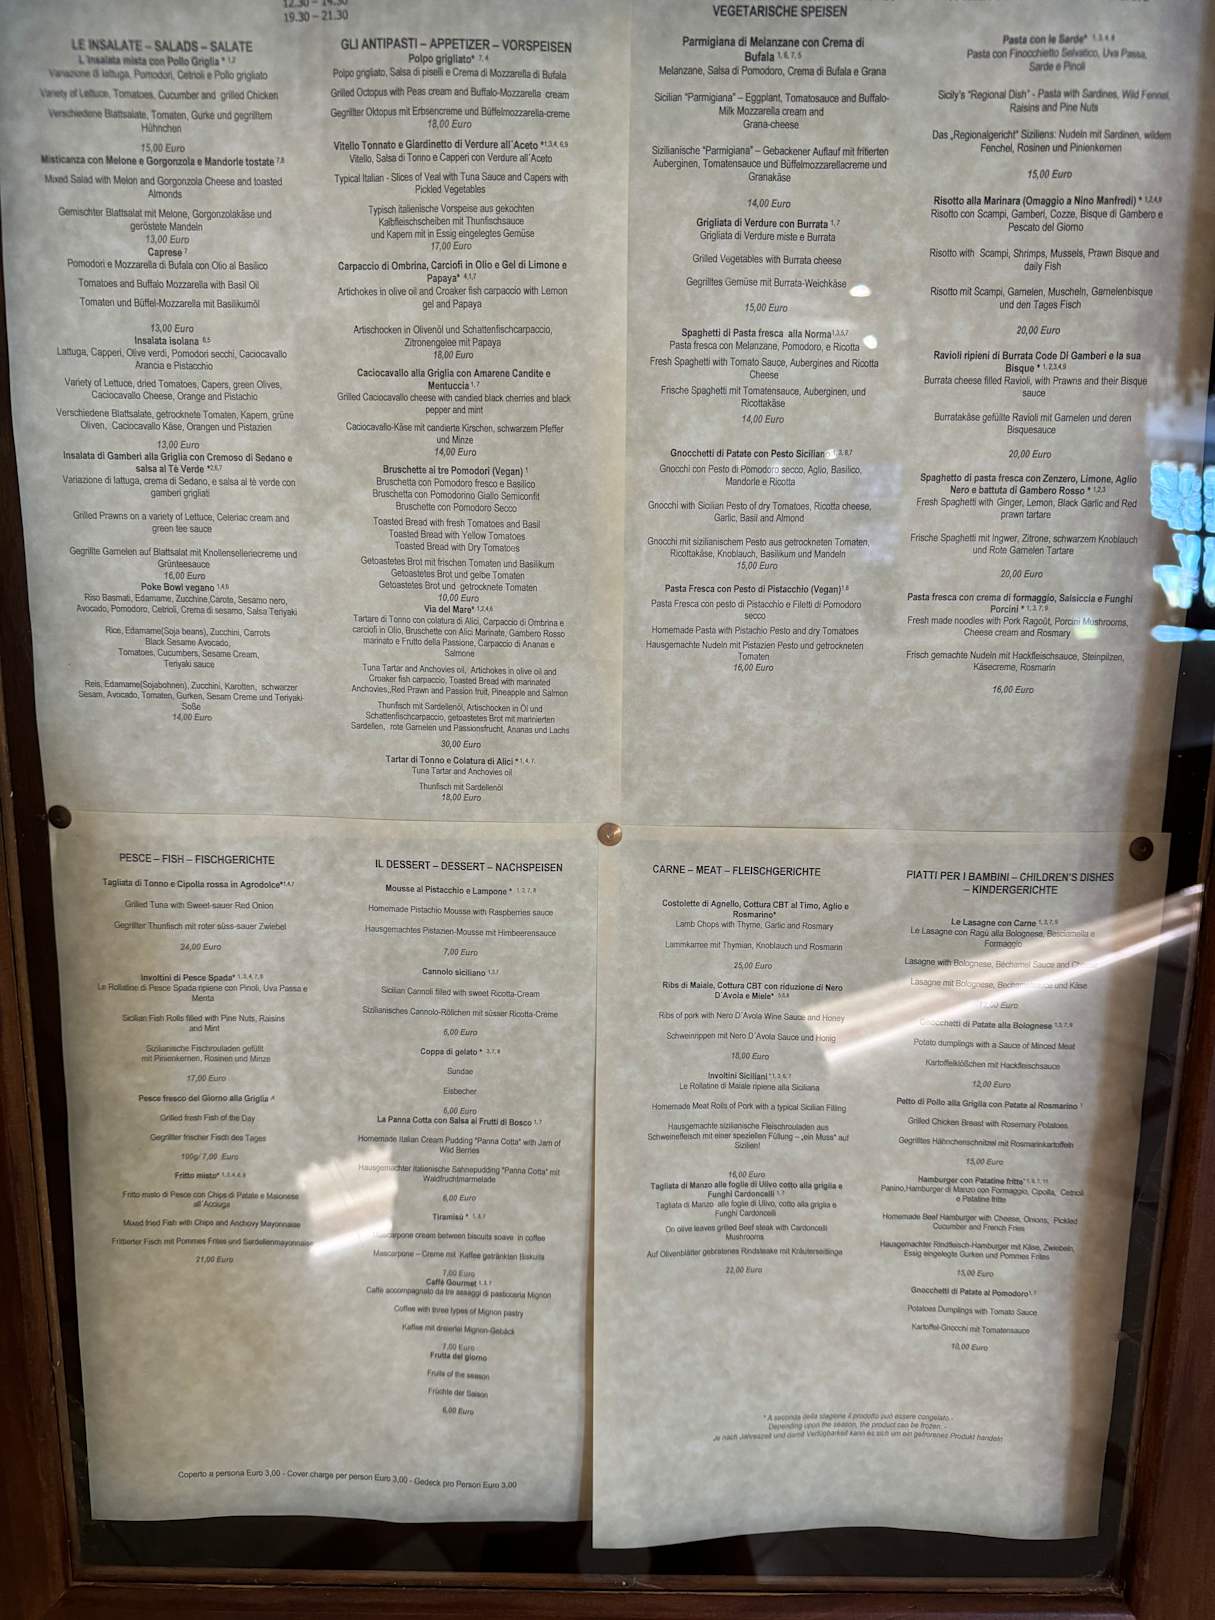 12.30 – 14.30
19.30 – 21.30
LE INSALATE – SALADS – SALATE
L'Insalata mista con Pollo Griglia * 1,2
Variazione di lattuga, Pomodori, Cetrioli e Pollo grigliato
Variety of Lettuce, Tomatoes, Cucumber and grilled Chicken
Verschiedene Blattsalate, Tomaten, Gurke und gegrilltem
Hühnchen
15,00 Euro
Misticanza con Melone e Gorgonzola e Mandorle tostate 7,8
Mixed Salad with Melon and Gorgonzola Cheese and toasted
Almonds
Gemischter Blattsalat mit Melone, Gorgonzolakäse und
geröstete Mandeln
13,00 Euro
Caprese 7
Pomodori e Mozzarella di Bufala con Olio al Basilico
Tomatoes and Buffalo Mozzarella with Basil Oil
Tomaten und Büffel-Mozzarella mit Basilikumöl
13,00 Euro
Insalata isolana 8,5
Lattuga, Capperi, Olive verdi, Pomodori secchi, Caciocavallo
Arancia e Pistacchio
Variety of Lettuce, dried Tomatoes, Capers, green Olives,
Caciocavallo Cheese, Orange and Pistachio
Verschiedene Blattsalate, getrocknete Tomaten, Kapern, grüne
Oliven, Caciocavallo Käse, Orangen und Pistazien
13,00 Euro
Insalata di Gamberi alla Griglia con Cremoso di Sedano e
salsa al Tè Verde *2,6,7
Variazione di lattuga, crema di Sedano, e salsa al tè verde con
gamberi grigliati
Grilled Prawns on a variety of Lettuce, Celeriac cream and
green tee sauce
Gegrillte Garnelen auf Blattsalat mit Knollenselleriecreme und
Grünteesauce
16,00 Euro
Poke Bowl vegano 1,4,6
Riso Basmati, Edamame, Zucchine,Carote, Sesamo nero,
Avocado, Pomodoro, Cetrioli, Crema di sesamo, Salsa Teriyaki
Rice, Edamame(Soja beans), Zucchini, Carrots
Black Sesame Avocado,
Tomatoes, Cucumbers, Sesame Cream,
Teriyaki sauce
Reis, Edamame(Sojabohnen), Zucchini, Karotten, schwarzer
Sesam, Avocado, Tomaten, Gurken, Sesam Creme und Teriyaki-
Soße
14,00 Euro
GLI ANTIPASTI – APPETIZER – VORSPEISEN
Polpo grigliato* 7, 4
Polpo grigliato, Salsa di piselli e Crema di Mozzarella di Bufala
Grilled Octopus with Peas cream and Buffalo-Mozzarella cream
Gegrillter Oktopus mit Erbsencreme und Büffelmozzarella-creme
18,00 Euro
Vitello Tonnato e Giardinetto di Verdure all´Aceto *1,3,4, 6,9
Vitello, Salsa di Tonno e Capperi con Verdure all´Aceto
Typical Italian - Slices of Veal with Tuna Sauce and Capers with
Pickled Vegetables
Typisch italienische Vorspeise aus gekochten
Kalbfleischscheiben mit Thunfischsauce
und Kapern mit in Essig eingelegtes Gemüse
17,00 Euro
Carpaccio di Ombrina, Carciofi in Olio e Gel di Limone e
Papaya* 4,1,7
Artichokes in olive oil and Croaker fish carpaccio with Lemon
gel and Papaya
Artischocken in Olivenöl und Schattenfischcarpaccio,
Zitronengelee mit Papaya
18,00 Euro
Caciocavallo alla Griglia con Amarene Candite e
Mentuccia 1, 7
Grilled Caciocavallo cheese with candied black cherries and black
pepper and mint
Caciocavallo-Käse mit candierte Kirschen, schwarzem Pfeffer
und Minze
14,00 Euro
Bruschette ai tre Pomodori (Vegan) 1
Bruschetta con Pomodoro fresco e Basilico
Bruschetta con Pomodorino Giallo Semiconfit
Bruschette con Pomodoro Secco
Toasted Bread with fresh Tomatoes and Basil
Toasted Bread with Yellow Tomatoes
Toasted Bread with Dry Tomatoes
Getoastetes Brot mit frischen Tomaten und Basilikum
Getoastetes Brot und gelbe Tomaten
Getoastetes Brot und getrocknete Tomaten
10,00 Euro
Via del Mare* 1,2,4,6
Tartare di Tonno con colatura di Alici, Carpaccio di Ombrina e
carciofi in Olio, Bruschette con Alici Marinate, Gambero Rosso
marinato e Frutto della Passione, Carpaccio di Ananas e
Salmone
Tuna Tartar and Anchovies oil, Artichokes in olive oil and
Croaker fish carpaccio, Toasted Bread with marinated
Anchovies,,Red Prawn and Passion fruit, Pineapple and Salmon
Thunfisch mit Sardellenöl, Artischocken in Öl und
Schattenfischcarpaccio, getoastetes Brot mit marinierten
Sardellen, rote Garnelen und Passionsfrucht, Ananas und Lachs
30,00 Euro
Tartar di Tonno e Colatura di Alici * 1, 4, 7.
Tuna Tartar and Anchovies oil
Thunfisch mit Sardellenöl
18,00 Euro
VEGETARISCHE SPEISEN
Parmigiana di Melanzane con Crema di
Bufala 1, 6, 7, 5
Melanzane, Salsa di Pomodoro, Crema di Bufala e Grana
Sicilian "Parmigiana" – Eggplant, Tomatosauce and Buffalo-
Milk Mozzarella cream and
Grana-cheese
Sizilianische "Parmigiana" – Gebackener Auflauf mit fritierten
Auberginen, Tomatensauce und Büffelmozzarellacreme und
Granakäse
14,00 Euro
Grigliata di Verdure con Burrata 1, 7
Grigliata di Verdure miste e Burrata
Grilled Vegetables with Burrata cheese
Gegrilltes Gemüse mit Burrata-Weichkäse
15,00 Euro
Spaghetti di Pasta fresca alla Norma1,3,5,7
Pasta fresca con Melanzane, Pomodoro, e Ricotta
Fresh Spaghetti with Tomato Sauce, Aubergines and Ricotta
Cheese
Frische Spaghetti mit Tomatensauce, Auberginen, und
Ricottakäse
14,00 Euro
Gnocchetti di Patate con Pesto Siciliano 1, 3, 8,7
Gnocchi con Pesto di Pomodoro secco, Aglio, Basilico,
Mandorle e Ricotta
Gnocchi with Sicilian Pesto of dry Tomatoes, Ricotta cheese,
Garlic, Basil and Almond
Gnocchi mit sizilianischem Pesto aus getrockneten Tomaten,
Ricottakäse, Knoblauch, Basilikum und Mandeln
15,00 Euro
Pasta Fresca con Pesto di Pistacchio (Vegan)1,8
Pasta Fresca con pesto di Pistacchio e Filetti di Pomodoro
secco
Homemade Pasta with Pistachio Pesto and dry Tomatoes
Hausgemachte Nudeln mit Pistazien Pesto und getrockneten
Tomaten
16,00 Euro
Pasta con le Sarde* 1, 3, 4, 8
Pasta con Finocchietto Selvatico, Uva Passa,
Sarde e Pinoli
Sicily's "Regional Dish" - Pasta with Sardines, Wild Fennel,
Raisins and Pine Nuts
Das „Regionalgericht" Siziliens: Nudeln mit Sardinen, wildem
Fenchel, Rosinen und Pinienkernen
15,00 Euro
Risotto alla Marinara (Omaggio a Nino Manfredi) * 1,2,4,9
Risotto con Scampi, Gamberi, Cozze, Bisque di Gambero e
Pescato del Giorno
Risotto with Scampi, Shrimps, Mussels, Prawn Bisque and
daily Fish
Risotto mit Scampi, Garnelen, Muscheln, Garnelenbisque
und den Tages Fisch
20,00 Euro
Ravioli ripieni di Burrata Code Di Gamberi e la sua
Bisque * 1, 2,3,4,9
Burrata cheese filled Ravioli, with Prawns and their Bisque
sauce
Burratakäse gefüllte Ravioli mit Garnelen und deren
Bisquesauce
20,00 Euro
Spaghetto di pasta fresca con Zenzero, Limone, Aglio
Nero e battuta di Gambero Rosso * 1,2,3
Fresh Spaghetti with Ginger, Lemon, Black Garlic and Red
prawn tartare
Frische Spaghetti mit Ingwer, Zitrone, schwarzem Knoblauch
und Rote Garnelen Tartare
20,00 Euro
Pasta fresca con crema di formaggio, Salsiccia e Funghi
Porcini * 1, 3, 7, 9
Fresh made noodles with Pork Ragoût, Porcini Mushrooms,
Cheese cream and Rosmary
Frisch gemachte Nudeln mit Hackfleischsauce, Steinpilzen,
Käsecreme, Rosmarin
16,00 Euro
PESCE – FISH – FISCHGERICHTE
Tagliata di Tonno e Cipolla rossa in Agrodolce*1,4,7
Grilled Tuna with Sweet-sauer Red Onion
Gegrillter Thunfisch mit roter süss-sauer Zwiebel
24,00 Euro
Involtini di Pesce Spada* 1, 3, 4, 7, 8
Le Rollatine di Pesce Spada ripiene con Pinoli, Uva Passa e
Menta
Sicilian Fish Rolls filled with Pine Nuts, Raisins
and Mint
Sizilianische Fischrouladen gefüllt
mit Pinienkernen, Rosinen und Minze
17,00 Euro
Pesce fresco del Giorno alla Griglia 4
Grilled fresh Fish of the Day
Gegrillter frischer Fisch des Tages
100g/ 7,00 Euro
Fritto misto* 1, 2, 4, 6, 9
Fritto misto di Pesce con Chips di Patate e Maionese
all´Acciuga
Mixed fried Fish with Chips and Anchovy Mayonnaise
Frittierter Fisch mit Pommes Frites und Sardellenmayonnaise
21,00 Euro
IL DESSERT – DESSERT – NACHSPEISEN
Mousse al Pistacchio e Lampone * 1, 3, 7, 8
Homemade Pistachio Mousse with Raspberries sauce
Hausgemachtes Pistazien-Mousse mit Himbeerensauce
7,00 Euro
Cannolo siciliano 1,3,7
Sicilian Cannoli filled with sweet Ricotta-Cream
Sizilianisches Cannolo-Röllchen mit süsser Ricotta-Creme
6,00 Euro
Coppa di gelato * 3, 7, 8
Sundae
Eisbecher
6,00 Euro
La Panna Cotta con Salsa ai Frutti di Bosco 1, 7
Homemade Italian Cream Pudding "Panna Cotta" with Jam of
Wild Berries
Hausgemachter italienische Sahnepudding "Panna Cotta" mit
Waldfruchtmarmelade
6,00 Euro
Tiramisù * 1, 3, 7
Mascarpone cream between biscuits soave in coffee
Mascarpone – Creme mit Kaffee getränkten Biskuits
7,00 Euro
Caffé Gourmet 1, 3, 7
Caffè accompagnato da tre assaggi di pasticceria Mignon
Coffee with three types of Mignon pastry
Kaffee mit dreierlei Mignon-Gebäck
7,00 Euro
Frutta del giorno
Fruits of the season
Früchte der Saison
6,00 Euro
Coperto a persona Euro 3,00 - Cover charge per person Euro 3,00 - Gedeck pro Person Euro 3,00
CARNE – MEAT – FLEISCHGERICHTE
Costolette di Agnello, Cottura CBT al Timo, Aglio e
Rosmarino*
Lamb Chops with Thyme, Garlic and Rosmary
Lammkarree mit Thymian, Knoblauch und Rosmarin
25,00 Euro
Ribs di Maiale, Cottura CBT con riduzione di Nero
D´Avola e Miele* 5,6,8
Ribs of pork with Nero D´Avola Wine Sauce and Honey
Schweinrippen mit Nero D´Avola Sauce und Honig
18,00 Euro
Involtini Siciliani * 1, 3, 6, 7
Le Rollatine di Maiale ripiene alla Siciliana
Homemade Meat Rolls of Pork with a typical Sicilian Filling
Hausgemachte sizilianische Fleischrouladen aus
Schweinefleisch mit einer speziellen Füllung – „ein Muss" auf
Sizilien!
16,00 Euro
Tagliata di Manzo alle foglie di Ulivo cotto alla griglia e
Funghi Cardoncelli 1, 7
Tagliata di Manzo alle foglie di Ulivo, cotto alla griglia e
Funghi Cardoncelli
On olive leaves grilled Beef steak with Cardoncelli
Mushrooms
Auf Olivenblätter gebratenes Rindsteake mit Kräuterseitlinge
22,00 Euro
PIATTI PER I BAMBINI – CHILDREN'S DISHES
– KINDERGERICHTE
Le Lasagne con Carne 1, 3, 7, 9
Le Lasagne con Ragù alla Bolognese, Besciamella e
Formaggio
Lasagne with Bolognese, Béchamel Sauce and
Lasagne mit Bolognese, und Käse
12,00 Euro
Gnocchetti di Patate alla Bolognese 1,3, 7, 9
Potato dumplings with a Sauce of Minced Meat
Kartoffelklößchen mit Hackfleischsauce
12,00 Euro
Petto di Pollo alla Griglia con Patate al Rosmarino 1
Grilled Chicken Breast with Rosemary Potatoes
Gegrilltes Hähnchenschnitzel mit Rosmarinkartoffeln
15,00 Euro
Hamburger con Patatine fritte* 1, 6, 7, 11
Panino,Hamburger di Manzo con Formaggio, Cipolla, Cetrioli
e Patatine fritte
Homemade Beef Hamburger with Cheese, Onions, Pickled
Cucumber and French Fries
Hausgemachter Rindfleisch-Hamburger mit Käse, Zwiebeln,
Essig eingelegte Gurken und Pommes Frites
15,00 Euro
Gnocchetti di Patate al Pomodoro1, 7
Potatoes Dumplings with Tomato Sauce
Kartoffel-Gnocchi mit Tomatensauce
10,00 Euro
* A seconda della stagione il prodotto può essere congelato.-
Depending upon the season, the product can be frozen. -
Je nach Jahreszeit und damit Verfügbarkeit kann es sich um ein gefrorenes Produkt handeln